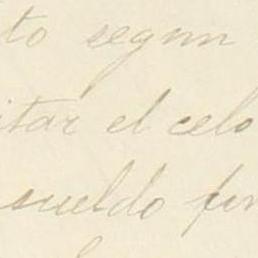 to segun
itar el celo
sueldo fin